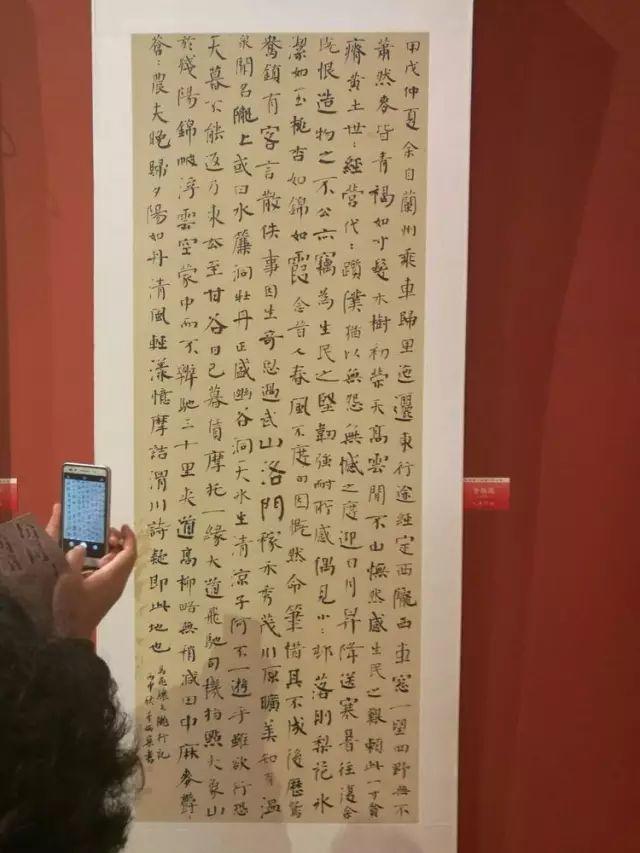 甲戌仲夏余自蘭州乘車歸里迤邐東行途經定西隴西車窓一望四野無不
蕭然麥穿青褐如寸髮木樹初榮天高雲閒不由憮然感生民之艱賴此一寸貧
瘠黃土世〻經營代〻躓僕猶以無怨無憾之度迎日月昇降送寒暑往復余
既恨造物之不公亦竊為生民之堅韌強耐所感偶見小〻邨落則梨花冰
潔如玉桃杏如錦如霞念昔人春風不度句因慨然命筆惜其不成後歷鴛
鴦鎮有客言散佚事因生奇思過武山洛門稼禾秀茂川原曠美知有溫
泉聞名隴上或曰水簾洞牡丹正盛幽谷洞天水生清涼子何不一遊乎雖欲行恐
天暮不能返乃東出至甘谷日已暮值摩托一緣大道飛馳司機指點大象山
於殘陽錦帔浮雲空蒙中而不辨馳三十里夾道高柳略無稍減田中麻麥鬱〻
蒼〻農夫晚歸夕陽如丹清風輕漾憶摩詰渭川詩疑即此地也
隴行記
丙申
書